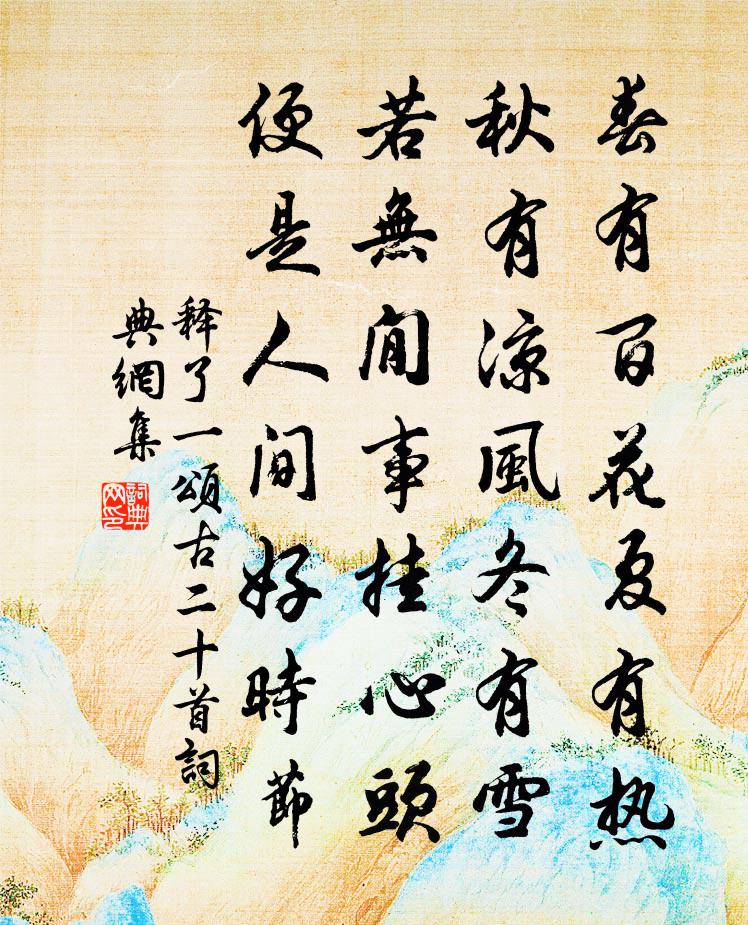 春有百花夏有热
秋有涼風冬有雪
若無閒事挂心頭
便是人间好時節
释了一頌古二十首詞
典網集
詞典
网印